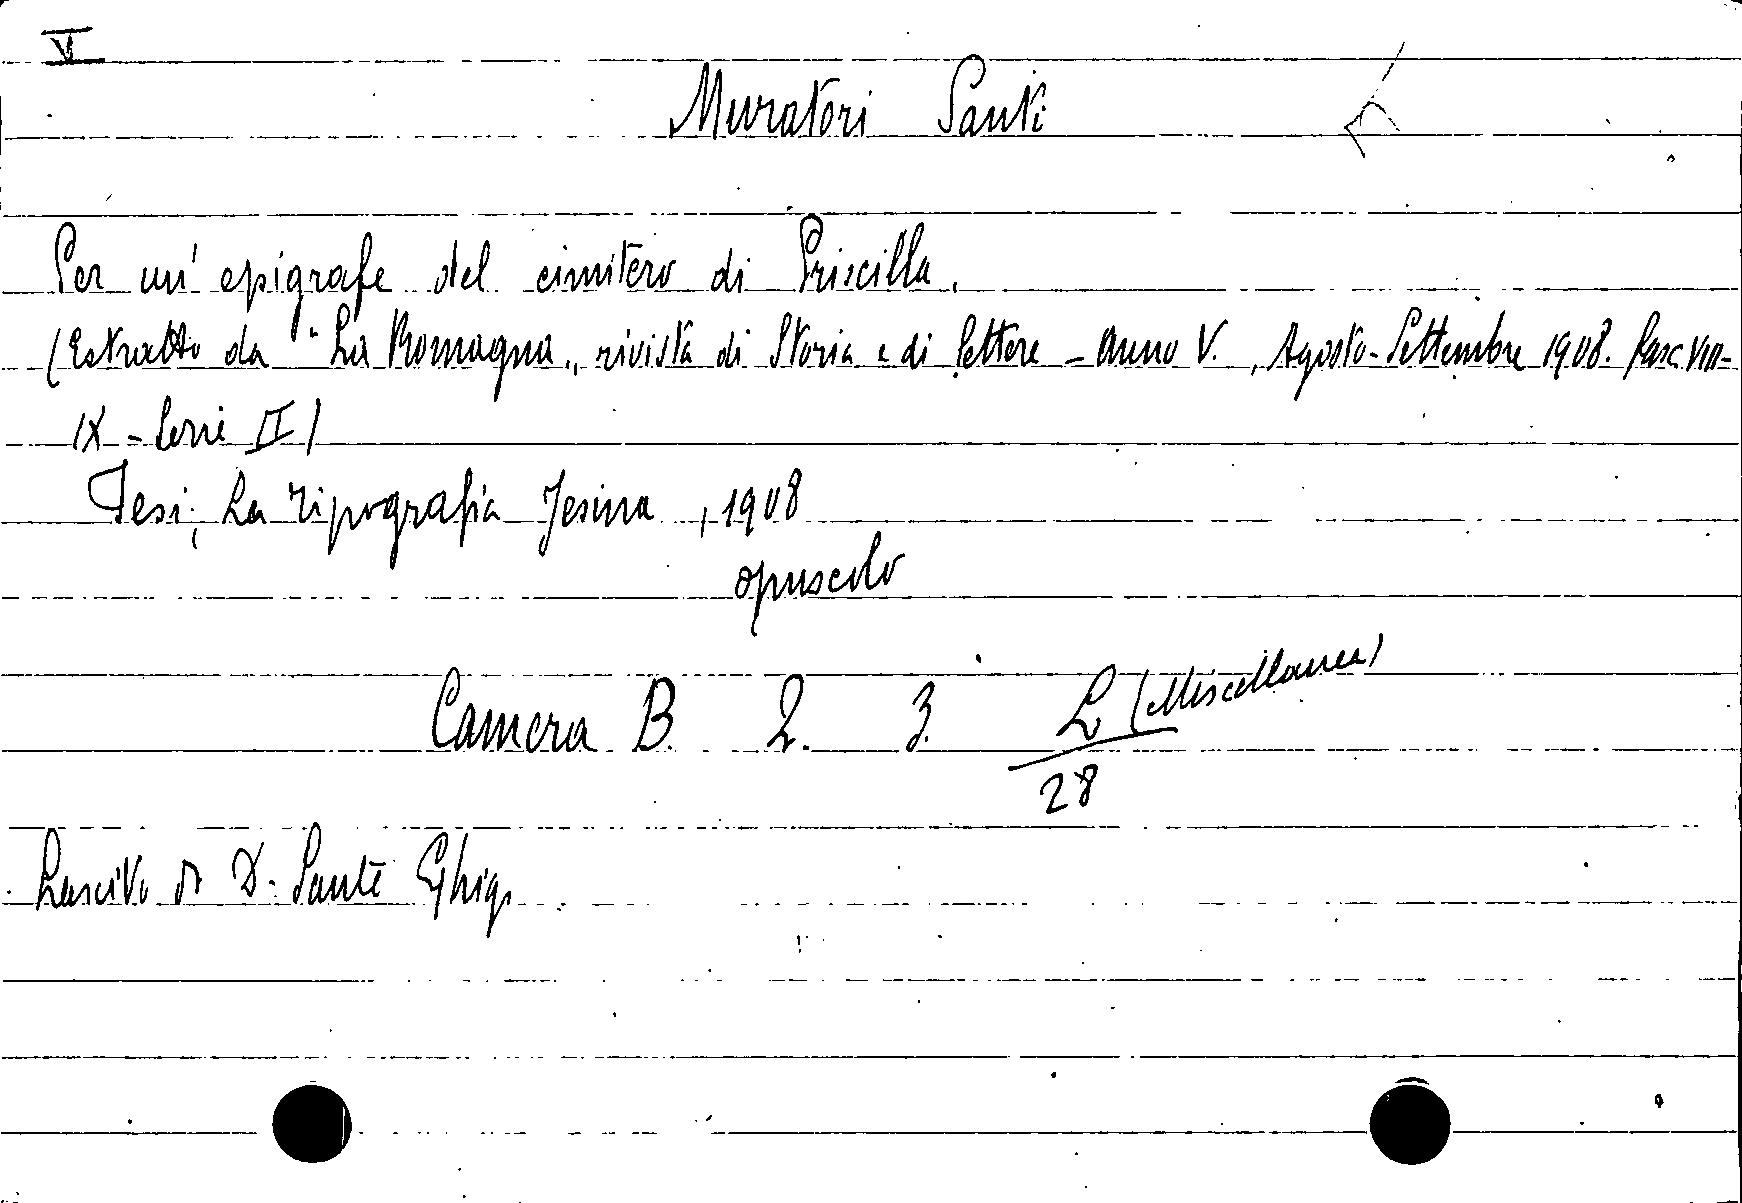 V
Muratori Santi
Per un' epigrafe del cimitero di Priscilla.
(Estratto da "La Romagna,, rivista di Storia e di lettere - Anno V., Agosto-Settembre 1908. fasc VIII-
IX - Serie II)
Jesi, La Tipografia Jesina, 1908
opuscolo
Camera B. 2. 3. L (Miscellanea)
28
Lascito di D. Sante Ghigi